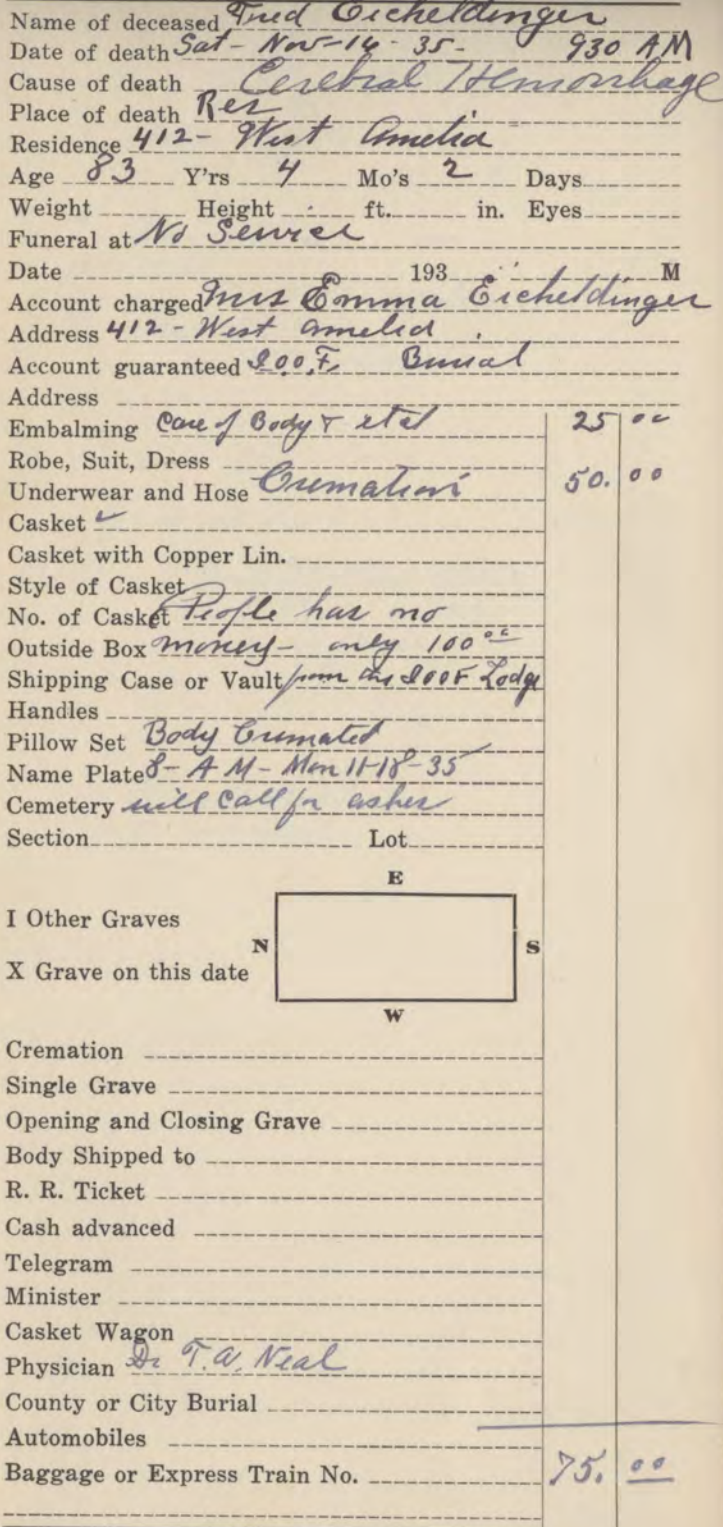 Name of deceased Fred Eicheldinger
Date of death Sat - Nov - 16 - 35 - 930 AM
Cause of death Cerebral Hemorrhage
Place of death Res
Residence 412 - West Amelia
Age 83 Y'rs 4 Mo's 2 Days
Weight Height ft. in. Eyes
Funeral at No Service
Date 193 M
Account charged Mrs Emma Eicheldinger
Address 412 - West Amelia
Account guaranteed I.O.O.F. Burial
Address
Embalming Care of Body & etal 25 00
Robe, Suit, Dress
Underwear and Hose Cremation 50. 00
Casket
Casket with Copper Lin.
Style of Casket
No. of Casket People has no
Outside Box money - only 100 00
Shipping Case or Vault from the I O O F Lodge
Handles
Pillow Set Body Cremated
Name Plate 8 - A M - Mon 11-18-35
Cemetery will call for ashes
Section Lot
E
I Other Graves
N S
X Grave on this date
W
Cremation
Single Grave
Opening and Closing Grave
Body Shipped to
R. R. Ticket
Cash advanced
Telegram
Minister
Casket Wagon
Physician Dr T. A. Neal
County or City Burial
Automobiles
Baggage or Express Train No. 75. 00